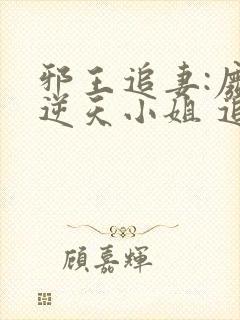 邪王追妻:
逆天小姐
顧嘉輝